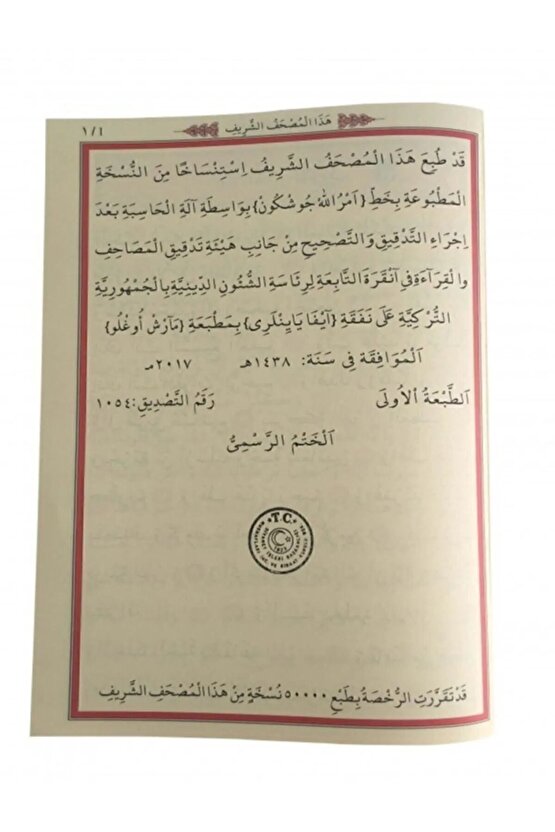 هَذَا الْمُصْحَفُ الشَّرِيفِ
١/٤
قَدْ طُبِعَ هَذَا الْمُصْحَفُ الشَّرِيفُ اِسْتِنْسَاخًا مِنَ النُّسْخَةِ
الْمَطْبُوعَةِ بِخَطِّ {اَمْرُ اللهْ جُوشْكُونْ} بِوَاسِطَةِ آلَةِ الْحَاسِبَةِ بَعْدَ
اِجْرَاءِ التَّدْقِيقِ وَالتَّصْحِيحِ مِنْ جَانِبِ هَيْئَةِ تَدْقِيقِ الْمَصَاحِفِ
وَالْقِرَآءَةِ فِى آنْقَرَةَ التَّابِعَةِ لِرِئَاسَةِ الشُّئُونِ الدِّينِيَّةِ بِالْجُمْهُورِيَّةِ
التُّرْكِيَّةِ عَلَى نَفَقَةِ {آيْفَا يَايِنْلَرِى} بِمَطْبَعَةِ {مَآرْشْ أُوغْلُو}
اَلْمُوَافِقَةِ فِى سَنَةِ: ١٤٣٨هـ ٢٠١٧مـ
اَلطَّبْعَةُ اْلاُولَى رَقَمُ التَّصْدِيقِ: ١٠٥٤
اَلْخَتْمُ الرَّسْمِىُّ
T.C.
قَدْ تَقَرَّرَتِ الرُّخْصَةُ بِطَبْعِ ٥٠٠٠٠ نُسْخَةٍ مِنْ هَذَا الْمُصْحَفِ الشَّرِيفِ